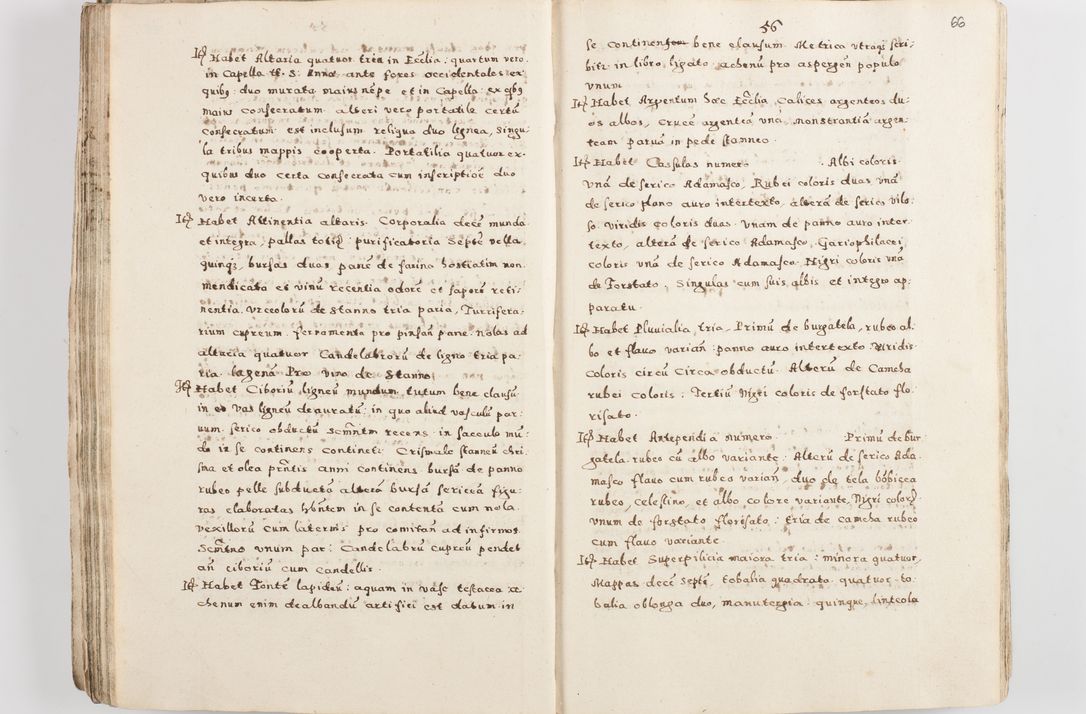 Itē Habet Altaria quatuor tria in Ecclia, quartum vero
in Capella tt. S: Annæ ante fores occidentales ex
quibꝫ duo murata maius nēpe et in Capella ex qbꝫ
maius consecratum alteri vero portatile certū
consecratum est inclusum reliqua duo lignea, singu-
la tribus mappis cooperta. Portatilia quatuor ex-
quibus duo certa consecrata cum inscriptiōe duo
vero incerta.
Itē Habet Attinentia altaris. Corporalia decē munda
et integra, pallas totiḋ: purificatoria Septē vella
quinqꝫ, bursas duas, panē de farina hostiatim non
mendicata et vinū recentia odorē et saporē reti-
nentia. Vrceolorū de stanno tria paria, Turrifera-
rium cupreum, ferramenta pro pinsan pane. nolas ad
altaria quatuor Candelabrorū de ligno tria pa-
ria lagenā Pro vino de Stanno
Itē Habet Ciboriū, ligneū mundum, tutum bene clausū
in eo vas ligneū deauratū: in quo aliud vasculū par-
uum serico obductū Scm̄ntm recens in sacculo mū-
do in se continens contineti Crismale stanneū chri-
sma et olea prn̄tis anni continens bursā de panno
rubeo pelle subductā alterā bursā sericeā figu-
ras elaboratas hn̄tem in se contentā cum nola
Vexillorū cum laternis pro comitan̄ ad infirmos
Scm̄tno vnum par: Candelabrū cupreū pendet
an̄ ciboriū cum Candellis.
Itē Habet Fontē lapideū: aquam in vase testacea æ
chenum enim dealbandū artifici est datum in
56
66
se continens bene clausum Metrica vtraqꝫ scri-
bitr in libro, ligato achenū pro aspergen̄ populo
vnum
Itē Habet Argentum hæc Ecclia, Calices argenteos du-
os albos, Crucē argenteā vnā, monstrantiā argen-
team paruā in pede stanneo.
Itē Habet Casulas numero . Albi coloris
vnā de serico Adamasco, Rubei coloris duas vnā
de serico plono auro intertexto, alterā de serico vilo-
so. viridis coloris duas vnam de panno auro inter
texto, alterā de serico Adamasco, Gariophilacei
coloris vnā de serico Adamasco Nigri coloris vnā
de Forstato, Singulas cum suis albis et integro ap-
paratu.
Itē Habet Pluvialia tria, Primū de burgatela, rubeo al-
bo et flauo varian̄: panno auro intertexto Viridis
Coloris circū Circa obductū. Alterū de Camcha
rubei coloris. Tertiū Nigri coloris de forstato flo-
risato.
Itē Habet Antependia numero Primū de bur
gatela rubeo cū albo variante. Alterū de serico Ada-
masco flauo cum rubeo varian̄, duo de tela bōbicea
rubeo, celestino, et albo colore variante, Nigri color
vnum de forstato florisato: tria de camcha rubeo
cum flauo variante.
Itē Habet Superpilicia maiora tria: minora quatuor,
Mappas decē septē, tobalia quadrata quatuor to-
balia oblonga duo, manutergia quinque, linteola